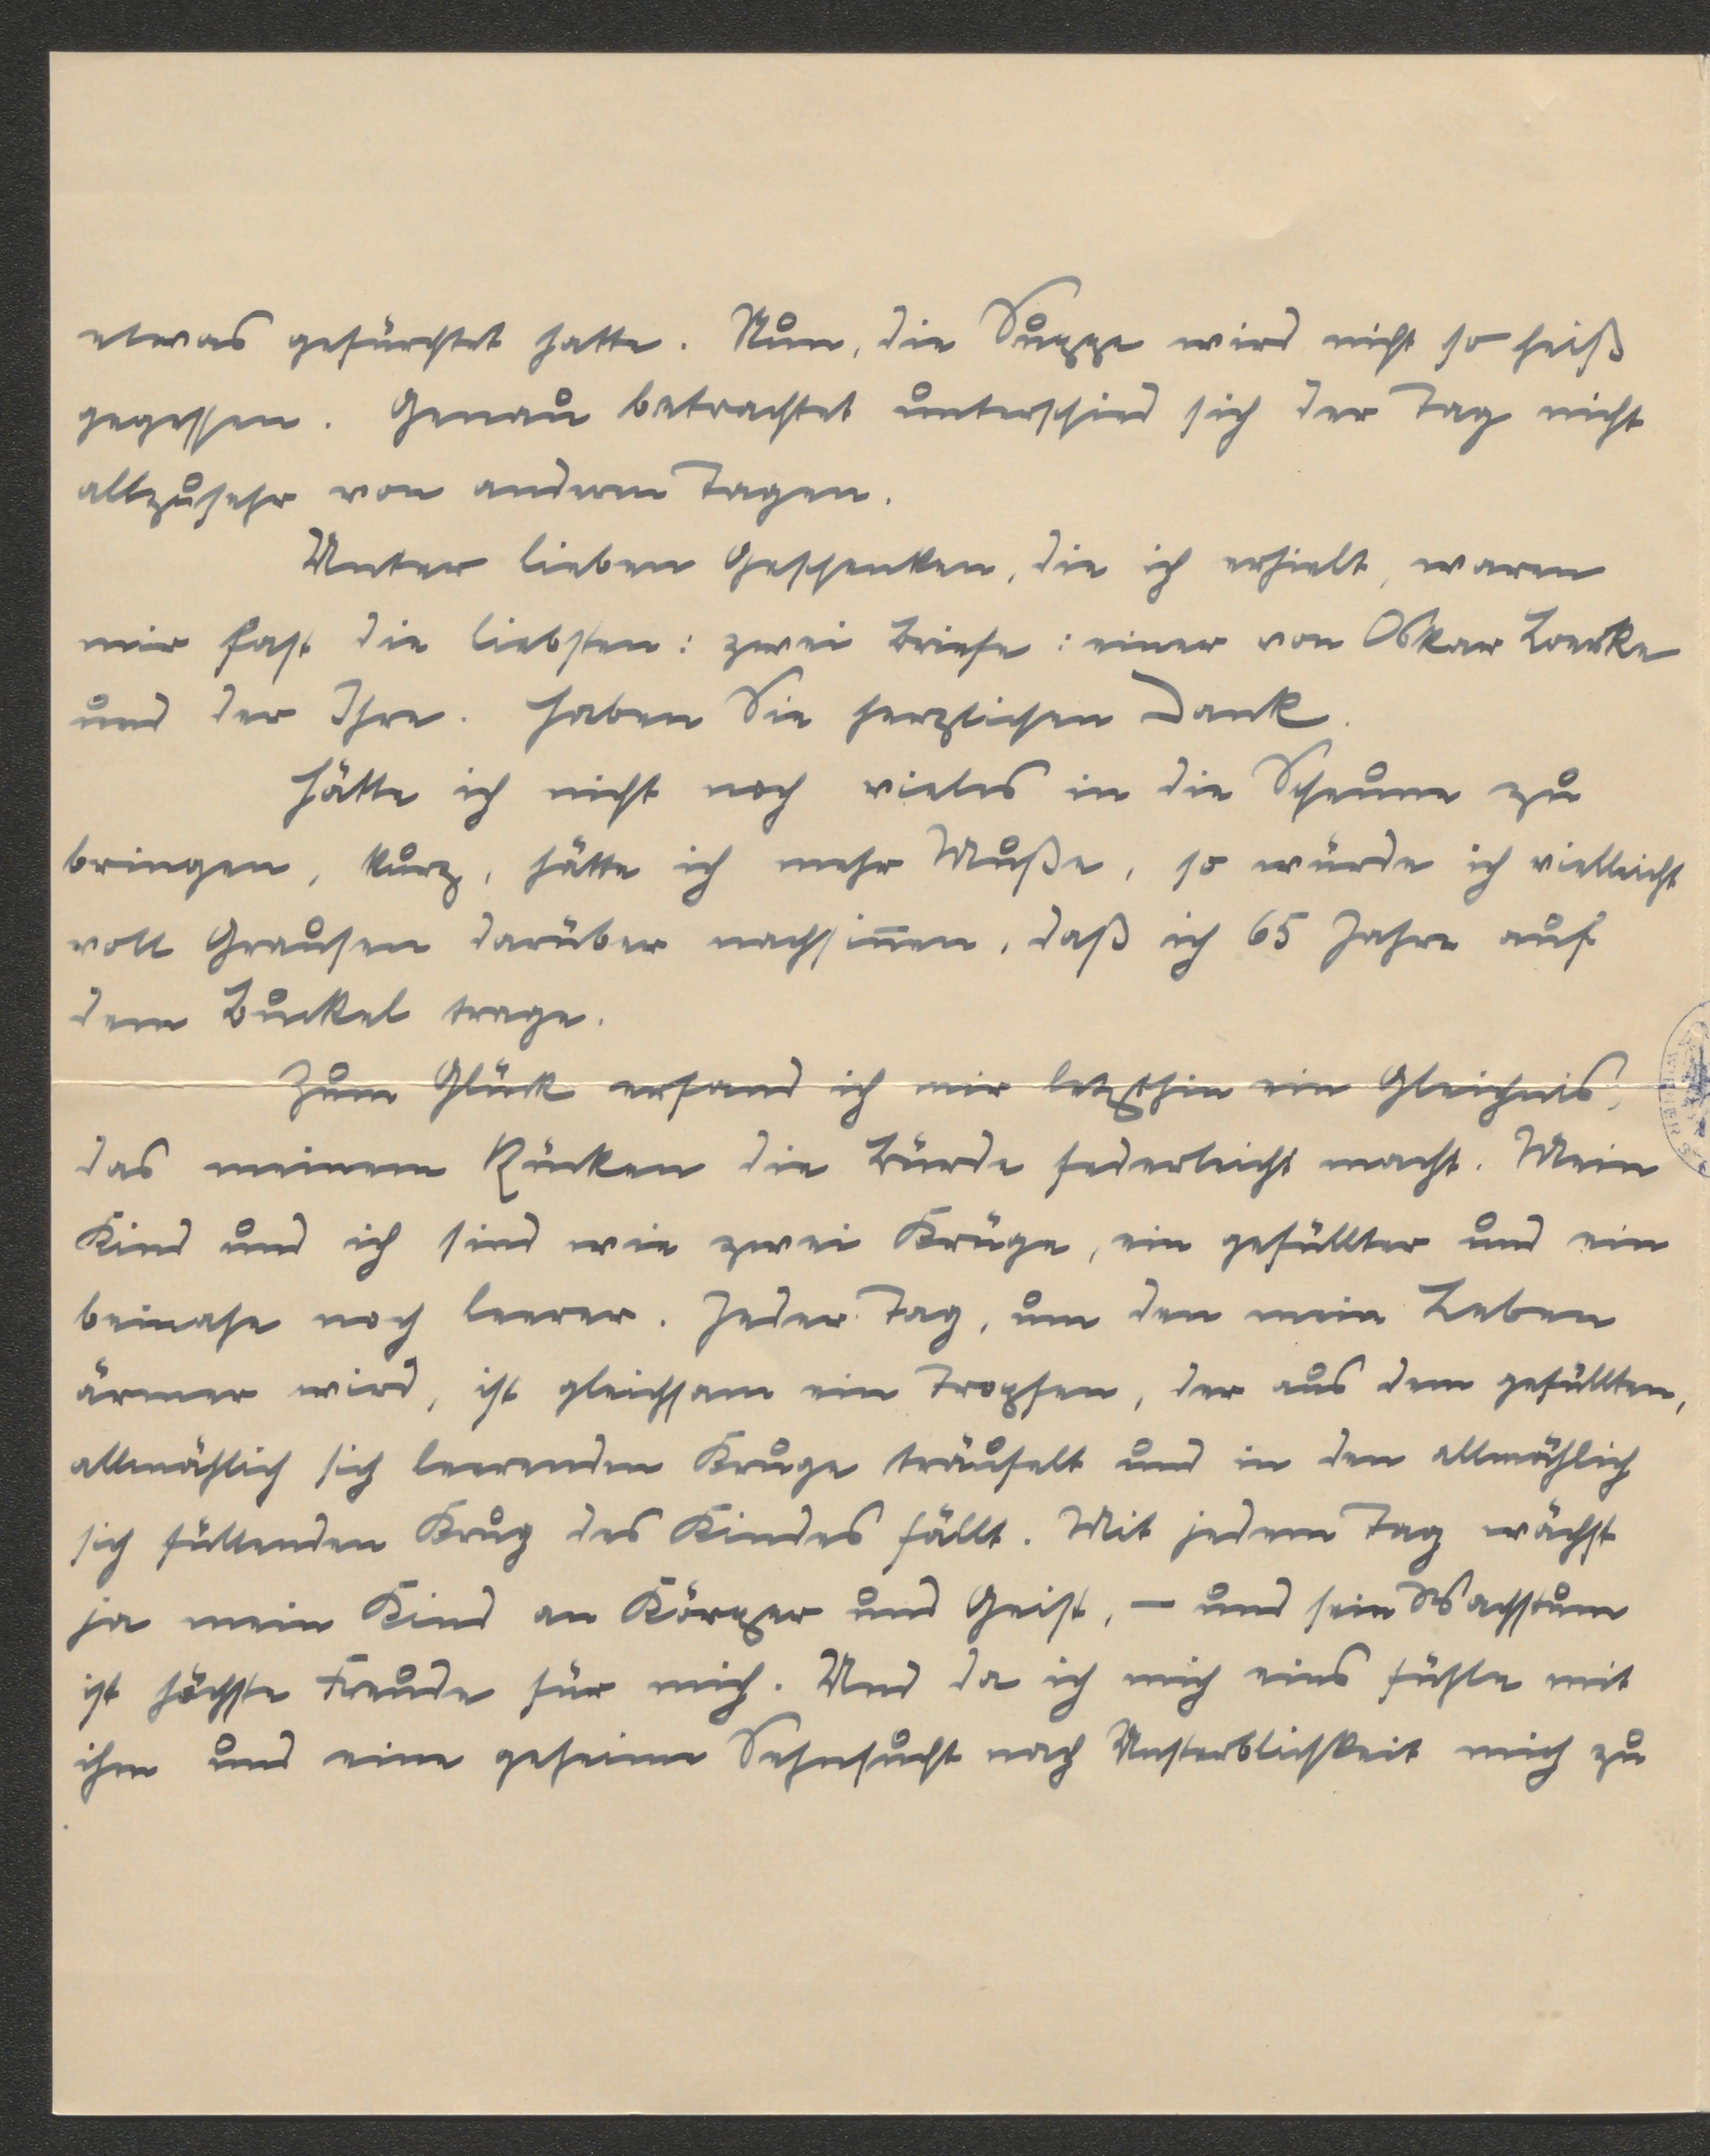 etwas gefürchtet hatte. Nun, die Suppe wird nicht so heiß
gegessen. Genau betrachtet unterschied sich der Tag nicht
allzusehr von anderen Tagen.
Unter lieben Geschenken, die ich erhielt, waren
mir fast die liebsten: zwei Briefe: einer von Oskar Loerke
und der Ihre. Haben Sie herzlichen Dank.
Hätte ich nicht noch vieles in die Scheune zu
bringen, kurz, hätte ich mehr Muße, so würde ich vielleicht
voll Grausen darüber nachsinnen, daß ich 65 Jahre auf
dem Buckel trage.
Zum Glück erfand ich mir letzthin ein Gleichnis,
das meinem Rücken die Bürde federleicht macht. Mein
Kind und ich sind wie zwei Krüge, ein gefüllter und ein
beinahe noch leerer. Jeder Tag, um den mein Leben
ärmer wird, ist gleichsam ein Tropfen, der aus dem gefüllten,
allmählich sich leerenden Kruge träufelt und in den allmählich
sich füllenden Krug des Kindes fällt. Mit jedem Tag wächst
ja mein Kind an Körper und Geist, – und sein Wachstum
ist höchste Freude für mich. Und da ich mich eins fühle mit
ihm und eine geheime Sehnsucht nach Unsterblichkeit mich zu